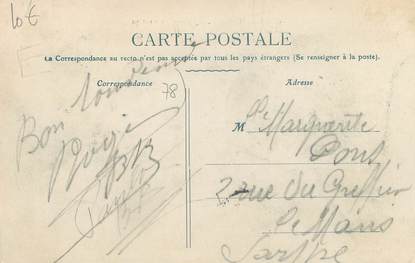 10€
CARTE POSTALE
La Correspondance au recto n'est pas acceptée par tous les pays étrangers (Se renseigner à la poste).
Correspondance
Adresse
78
Bon souvenir
M lle Marguerite
Pons
2 rue du Greffier
Le Mans
Sarthe